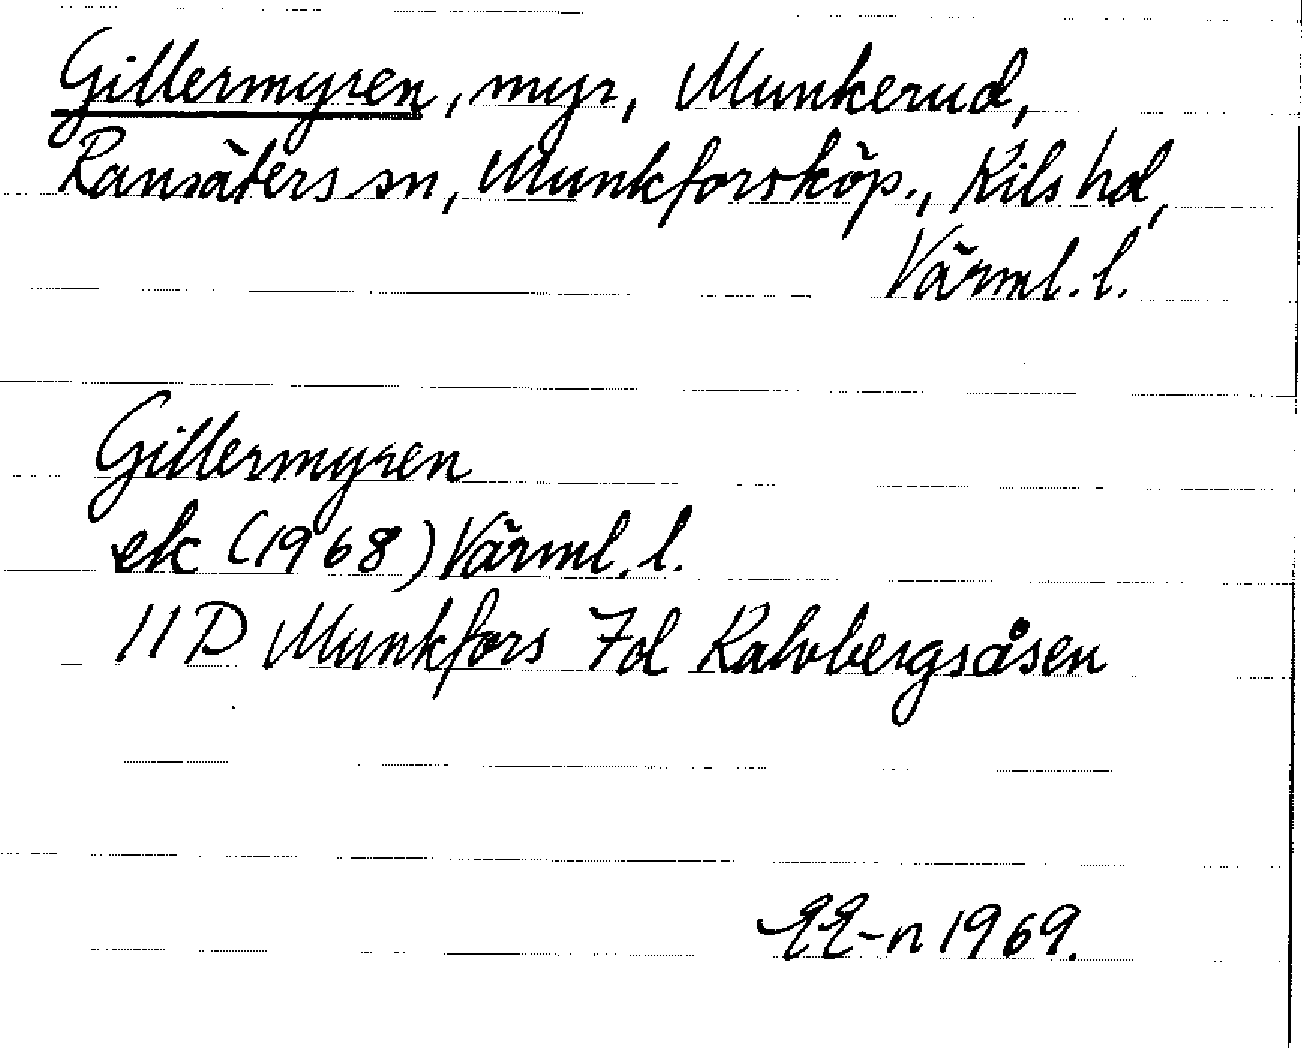 Gillermyren, myr, Munkerud,
Ransäters sn, Munkforsköp., Kils hd,
Värml. l.
Gillermyren
ek (1968) Värml. l.
11 D Munkfors 7d Kalvbergsåsen
EE-n 1969.